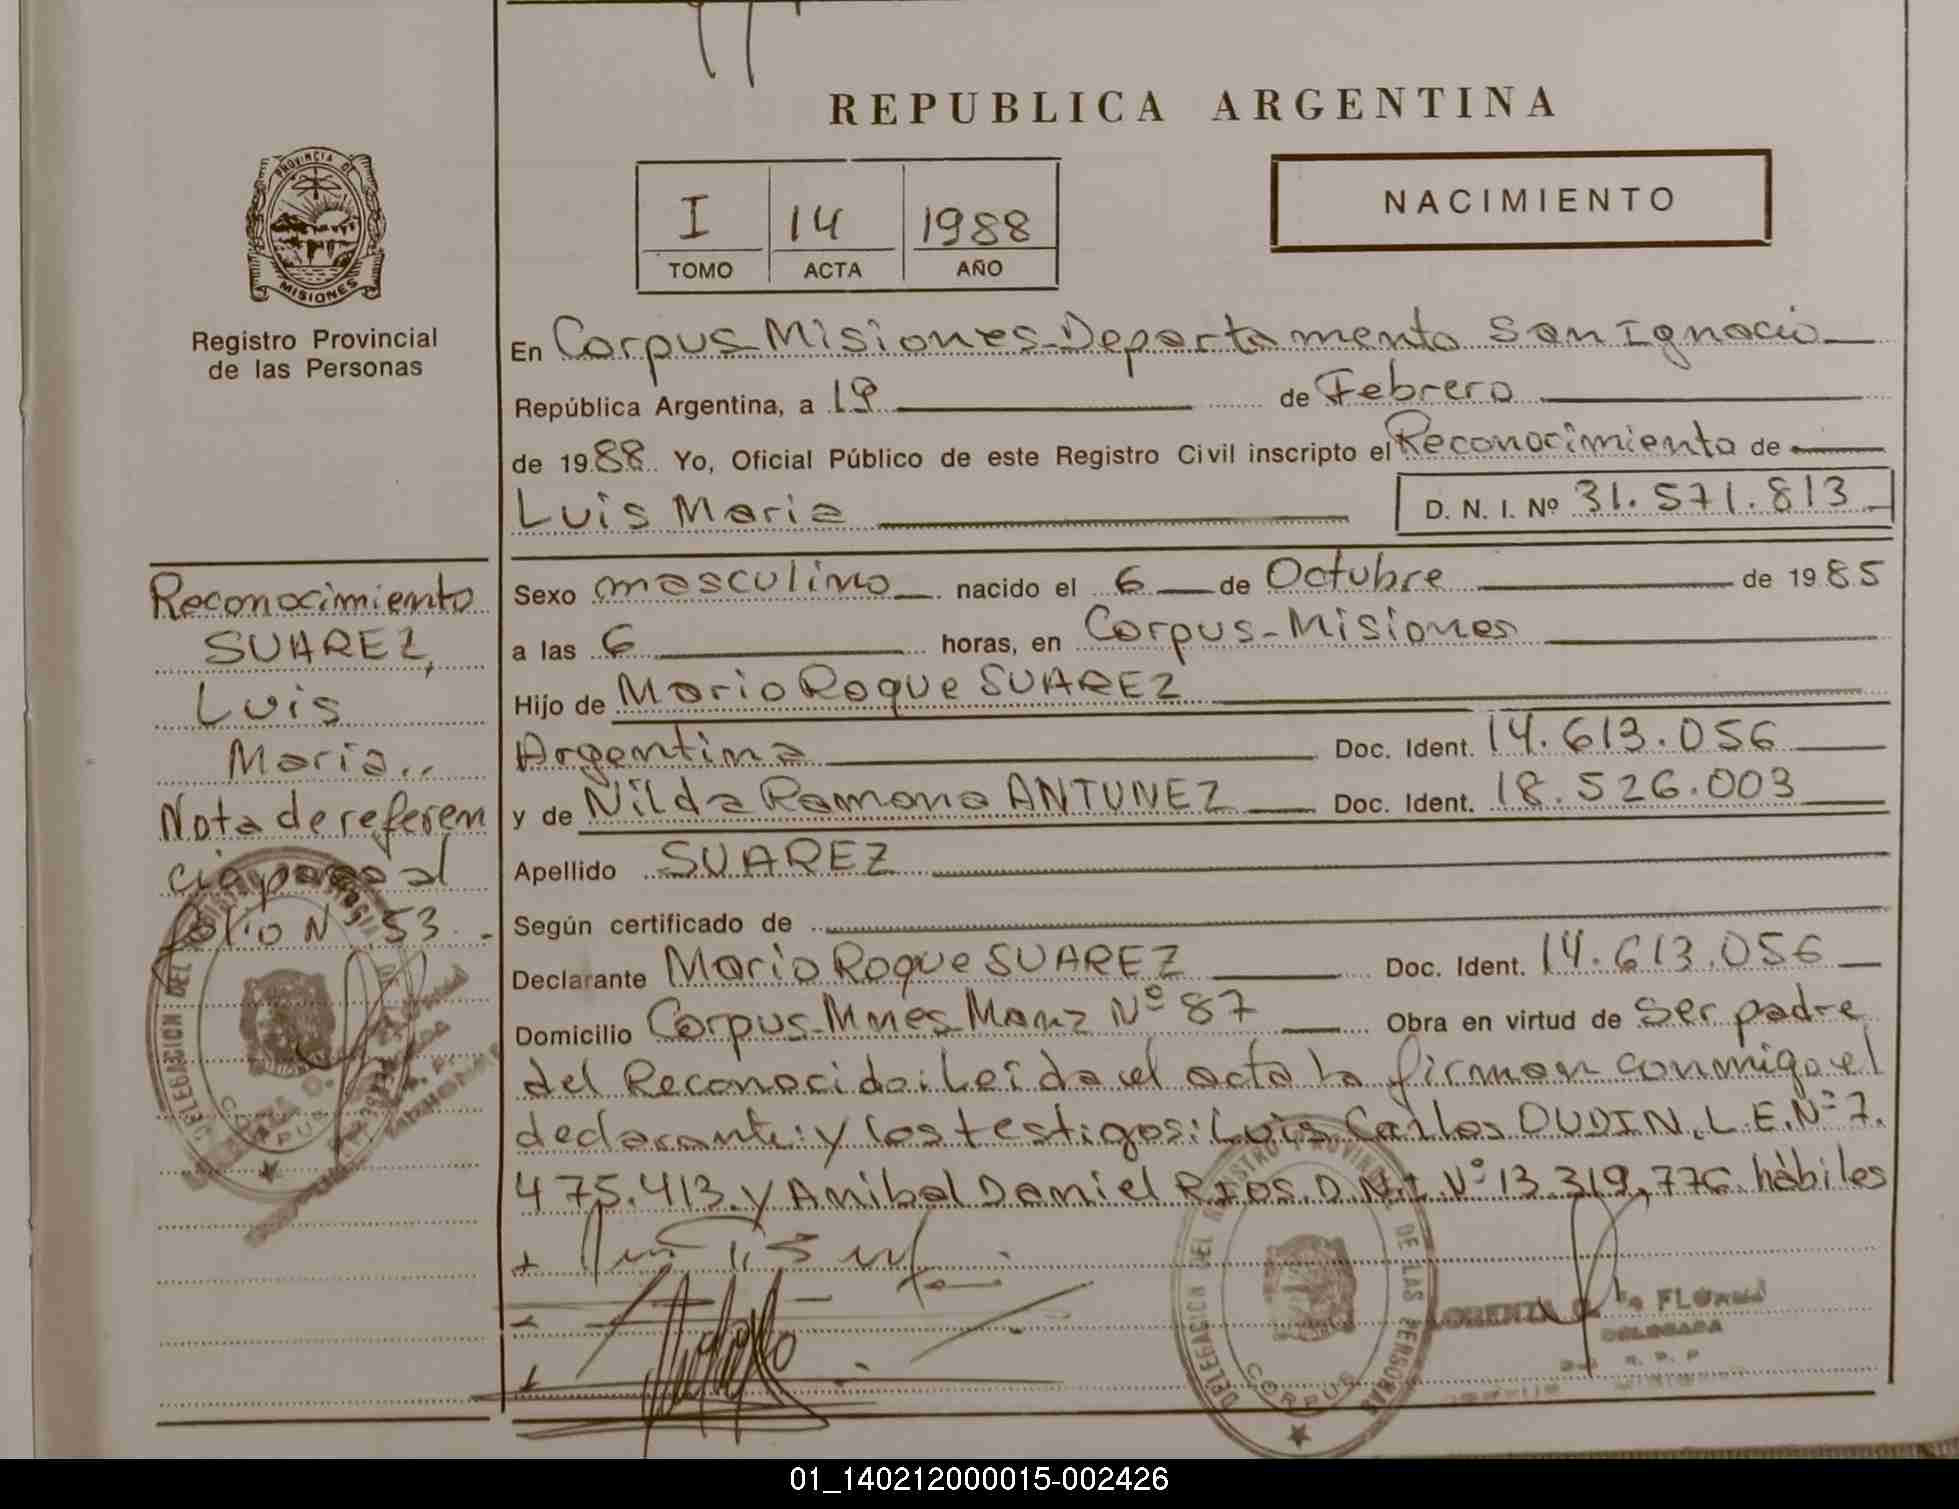 REPUBLICA ARGENTINA
PROVINCIA DE
MISIONES
Registro Provincial
de las Personas
I 14 1988
TOMO ACTA AÑO
NACIMIENTO
En Corpus Misiones Departamento San Ignacio
República Argentina, a 19 de Febrero
de 1988 Yo, Oficial Público de este Registro Civil inscripto el Reconocimiento de
Luis Maria D. N. I. Nº 31.571.813
Sexo masculino nacido el 6 de Octubre de 1985
a las 6 horas, en Corpus-Misiones
Hijo de Mario Roque SUAREZ
Argentina Doc. Ident. 14.613.056
y de Nilda Ramona ANTUNEZ Doc. Ident. 18.526.003
Apellido SUAREZ
Según certificado de
Declarante Mario Roque SUAREZ Doc. Ident. 14.613.056
Domicilio Corpus-Mnes-Manz Nº 87 Obra en virtud de Ser padre
del Reconocido: Leida el acta la firman conmigo el
declarante: y los testigos: Luis Carlos DUDIN, L.E. Nº 7.
475.413. y Anibal Daniel RIOS. D.N.I Nº 13.319,776. hábiles
Reconocimiento
SUAREZ,
Luis
Maria..
Nota de referen
cia paso al
folio N 53.-
DELEGACION DEL REGISTRO PROVINCIAL DE LAS PERSONAS
CORPUS
DELEGADA
01_140212000015-002426